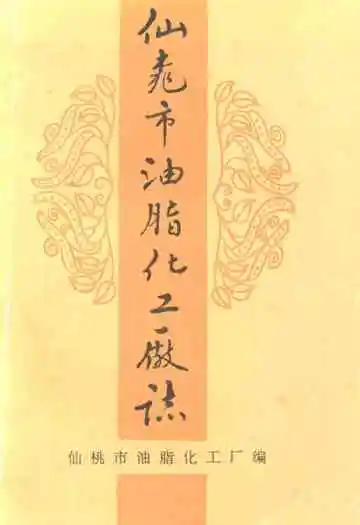 仙桃市油脂化工厰誌
仙桃市油脂化工厂编